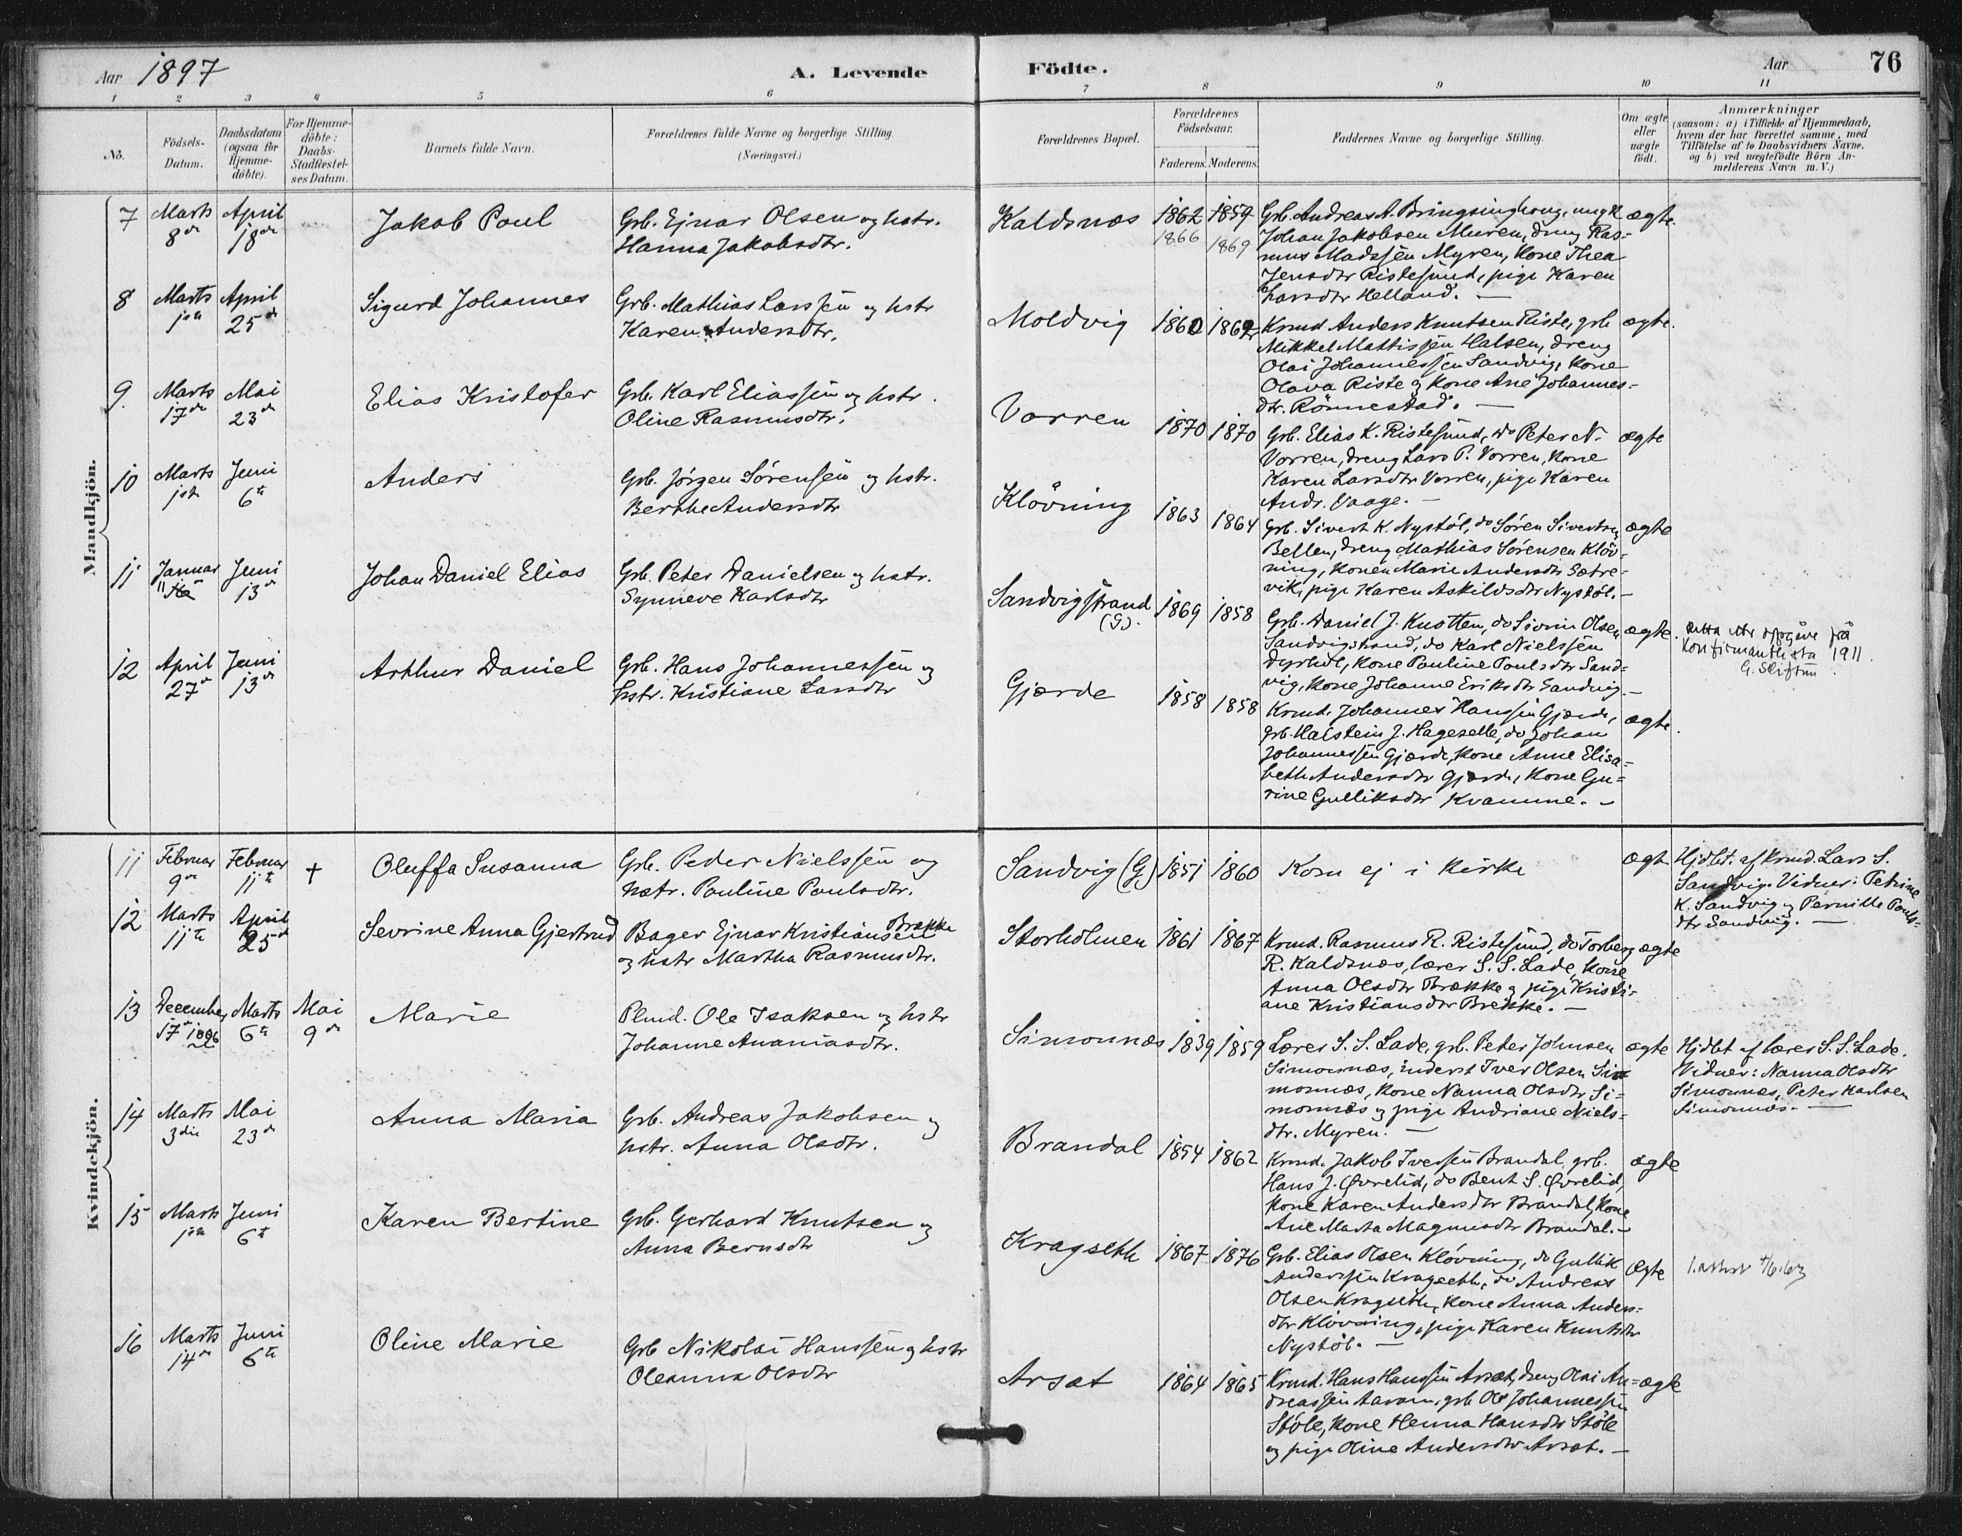 Aar 1897
A. Levende
Födte.
Aar
76
1 2 3 4 5 6 7 8 9 10 11
No.
Födsels-
Datum.
Daabsdatum
(ogsaa for
Hjemme-
döbte).
For Hjemme-
döbte:
Daabs-
Stadfæstel-
ses Datum.
Barnets fulde Navn.
Forældrenes fulde Navne og borgerlige Stilling.
(Næringsvei.)
Forældrenes Bopæl.
Forældrenes
Födselsaar.
Faderens. Moderens.
Faddernes Navne og borgerlige Stilling.
Om ægte
eller
uægte
födt.
Anmærkninger
(saasom: a) i Tilfælde af Hjemmedaab,
hvem der har forrettet samme, med
Tilföielse af to Daabsvidners Navne,
og b) ved uægtefödte Börn An-
melderens Navn m. V.)
Mandkjön.
7
Marts
8de
April
18de
Jakob Poul
Grb. Ejnar Olsen og hstr.
Hanna Jakobsdtr.
Kaldsnæs
1862 1859
1866 1869
Grb. Andreas A. Bringsinghoug, ungk
Johan Jakobsen Muren, dreng Ras-
mus Madssen Myren, kone Thea
Jensdtr Ristesund, pige Karen
Larsdtr Helland. —
ægte.
8
Marts
1ste
April
25de
Sigurd Johannes
Grb. Mathias Larssen og hstr
Karen Andersdtr.
Moldvig
1860 1862
Krmd Anders Knutsen Riste, grb
Mikkel Mattissen Halsen, dreng
Olai Johannessen Sandvig, kone
Olava Riste og kone Ane Johannes-
dtr. Rönnestad. —
ægte.
9.
Marts
17de
Mai
23de
Elias Kristofer
Grb. Karl Eliassen og hstr.
Oline Rasmusdtr.
Vorren
1870 1870
Grb. Elias K. Ristesund, do Peter N.
Vorren, dreng Lars P. Vorren, kone
Karen Larsdtr Vorren, pige Karen
Andr. Vaage. —
ægte
10
Marts
1ste
Juni
6te
Anders
Grb. Jørgen Sørensen og hstr.
Berthe Andersdtr
Klövning
1863 1864
Grb. Sivert K. Nystöl, do Søren Sivertsen
Bellen, dreng Mathias Sørensen Klöv-
ning, konen Marie Andersdtr Sætre-
vik, pige Karen Askildsdtr Nystöl. —
ægte
11
Januar
Juni
13de
Johan Daniel Elias
Grb. Peter Danielsen og hstr.
Synneve Karlsdtr
Sandvigstrand
(G).
1869 1858
Grb. Daniel J. Knotten, do Sivrin Olsen
Sandvigstrand, do Karl Nielssen
Dyrhol, kone Pauline Poulsdtr Sand-
vig, kone Johanne Eriksdtr Sandvig. —
ægte.
Detta etter oppgåve frå
konfirmantlista 1911.
12
April
27de
Juni
13de
Arthur Daniel
Grb. Hans Johannessen og
hstr. Kristiane Larsdtr
Gjærde
1858 1858
Krmd. Johannes Hanssen Gjærde,
grb. Halstein J. Hageselle, do Johan
Johannessen Gjærde, kone Anne Elisa-
beth Andersdtr Gjærde, kone Gu-
rine Gulliksdtr Kvamme. —
ægte.
Kvindekjön.
11
Februar
9de
Februar
11te
+
Oluffa Susanna
Grb. Peder Nielssen og
hstr. Pauline Poulsdtr.
Sandvig (G)
1851 1860
Kom ej i kirke
ægte
Hjdbt. af krmd. Lars S.
Sandvig. Vidner: Petrine
K. Sandvig og Pernille Pouls-
dtr Sandvig. —
12
Marts
11te
April
25de
Sevrine Anna Gjertrud
Bager Ejnar Kristiansen Brække
og hstr Martha Rasmusdtr.
Storholmen
1861 1867
Krmd. Rasmus R. Ristesund, do Torberg
R. Kaldsnæs, lærer S. S. Lade, kone
Anna Olsdtr Brække og pige Kristi-
ane Kristiansdtr Brekke. —
ægte
13
December
17de 1896
Marts
6te
Mai
9de
Marie
Plmd. Ole Isaksen og hstr
Johanne Ananiasdtr.
Simonnæs
1839 1859
Lærer S. S. Lade, grb. Peter Johnsen
Simonnæs, inderst Iver Olsen Si-
monnæs, kone Nanna Olsdtr Si-
monnæs og pige Andriane Niels-
dtr. Myren. —
ægte
Hjdbt af lærer S. S. Lade.
Vidner: Nanna Olsdtr
Simonnæs, Peter Karlsen
Simonnæs. —
14
Marts
3die
Mai
23de
Anna Maria
Grb. Andreas Jakobsen og
hstr. Anna Olsdtr.
Brandal
1854 1862
Krmd. Jakob Iverssen Brandal, grb.
Hans J. Øvrelid, do Bent S. Øvrelid,
kone Karen Andersdtr Brandal, kone
Ane Marta Magnusdtr Brandal. —
ægte
15
Marts
1ste
Juni
6te
Karen Bertine
Grb. Gerhard Knutsen og
Anna Bernsdtr
Kragseth
1867 1876
Grb. Elias Olsen Klövning, do Gullik
Anderssen Kragseth, do Andreas
Olsen Kragseth, kone Anna Anders-
dtr Klövning, pige Karen Knutsdtr
Nystöl. —
ægte
16
Marts
14de
Juni
6te
Oline Marie
Grb Nikolai Hanssen og hstr
Oleanna Olsdtr
Arsæt
1864 1865
Krmd. Hans Hanssen Arsæt, dreng Olai An-
dreassen Aaram, grb Ole Johannessen
Støle, kone Henna Hansdtr Støle
og pige Oline Andersdtr Arsæt. —
ægte